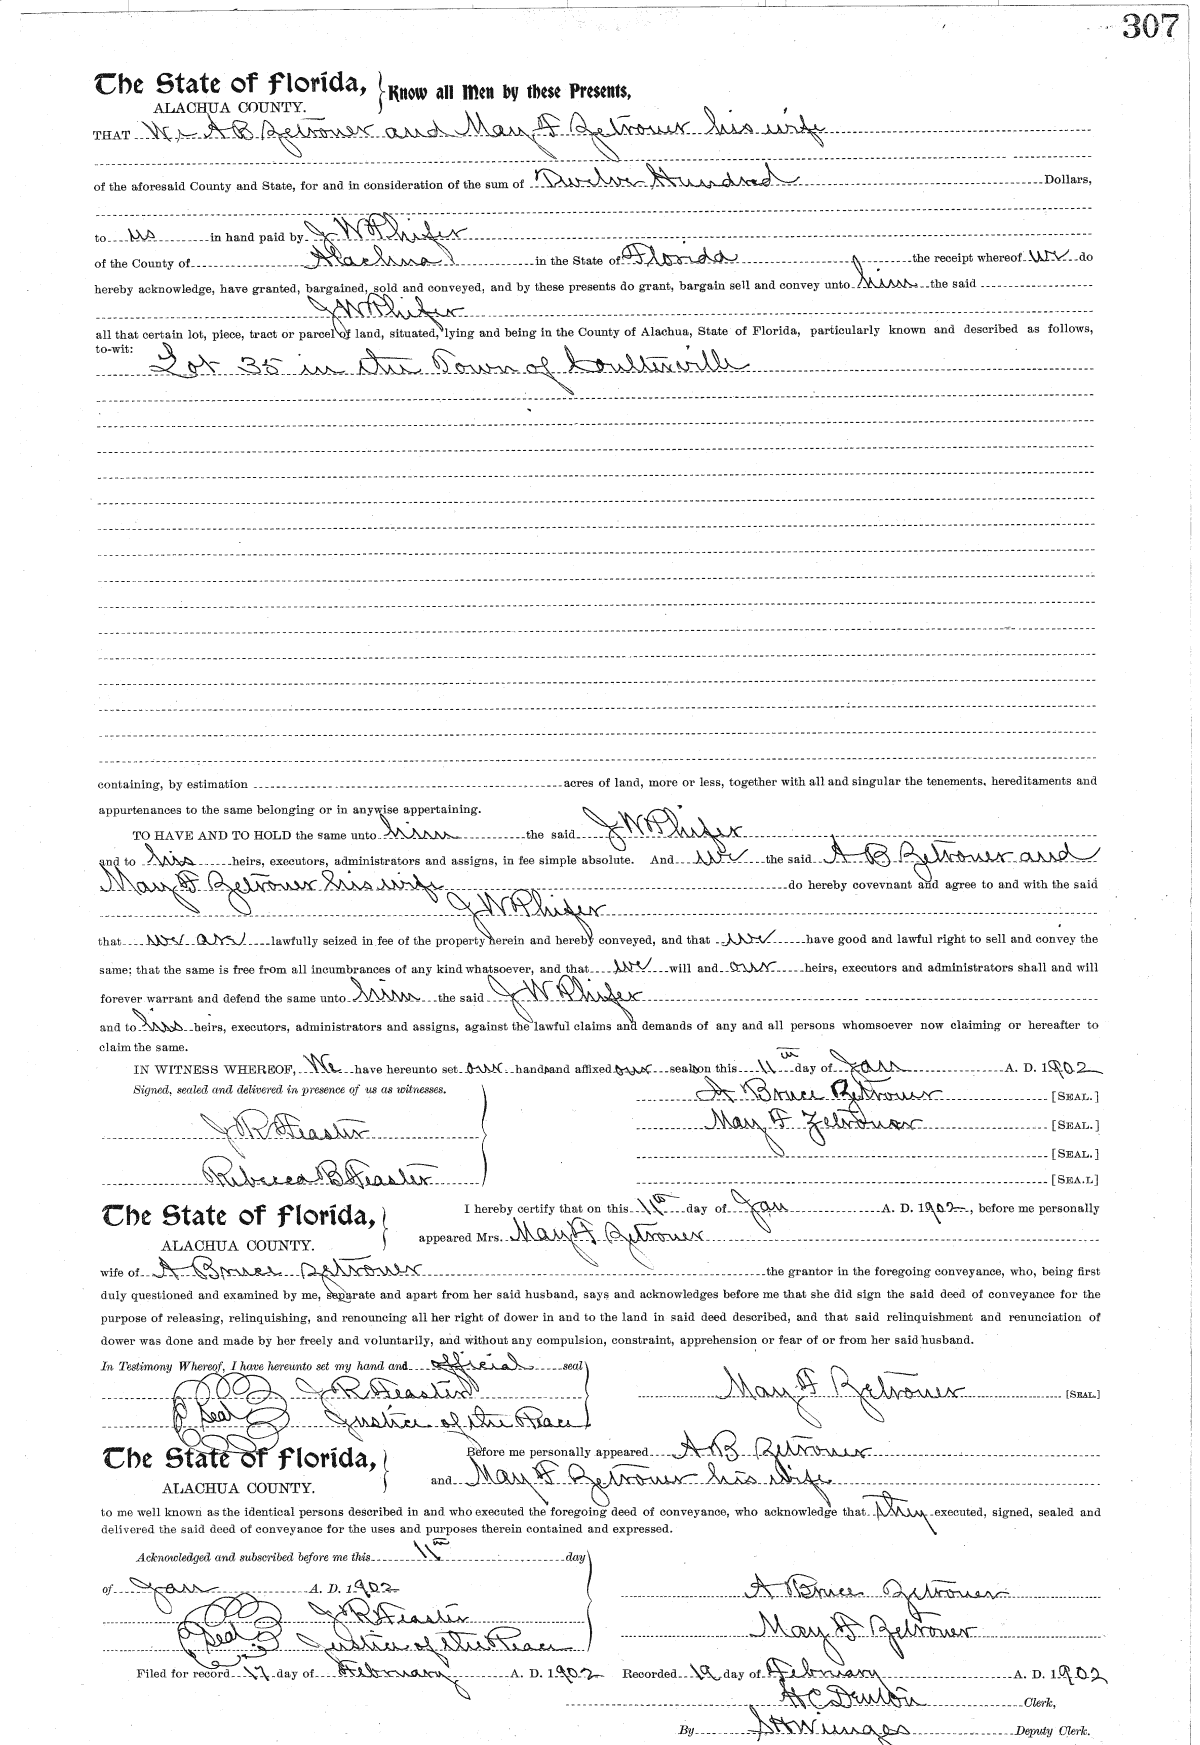 307
The State of Florida, Know all Men by these Presents,
ALACHUA COUNTY.
THAT We A B Zetrouer and May F Zetrouer his wife
of the aforesaid County and State, for and in consideration of the sum of Twelve Hundred Dollars,
to us in hand paid by J W Phifer
of the County of Alachua in the State of Florida the receipt whereof we do
hereby acknowledge, have granted, bargained, sold and conveyed, and by these presents do grant, bargain sell and convey unto him the said
J W Phifer
all that certain lot, piece, tract or parcel of land, situated, lying and being in the County of Alachua, State of Florida, particularly known and described as follows,
to-wit:
Lot 35 in the Town of Coulterville
containing, by estimation acres of land, more or less, together with all and singular the tenements, hereditaments and
appurtenances to the same belonging or in anywise appertaining.
TO HAVE AND TO HOLD the same unto him the said J W Phifer
and to his heirs, executors, administrators and assigns, in fee simple absolute. And we the said A B Zetrouer and
May F Zetrouer his wife do hereby covevnant and agree to and with the said
J W Phifer
that we are lawfully seized in fee of the property herein and hereby conveyed, and that we have good and lawful right to sell and convey the
same: that the same is free from all incumbrances of any kind whatsoever, and that we will and our heirs, executors and administrators shall and will
forever warrant and defend the same unto him the said J W Phifer
and to his heirs, executors, administrators and assigns, against the lawful claims and demands of any and all persons whomsoever now claiming or hereafter to
claim the same.
IN WITNESS WHEREOF, We have hereunto set our hands and affixed our seals on this 11th day of Jan A. D. 1902
Signed, sealed and delivered in presence of us as witnesses.
A Bruce Zetrouer [SEAL.]
J R Feaster
May F Zetrouer [SEAL.]
[SEAL.]
Rebecca B Feaster
[SEA.L]
The State of Florida, I hereby certify that on this 11th day of Jan A. D. 1902, before me personally
ALACHUA COUNTY. appeared Mrs. May F Zetrouer
wife of A Bruce Zetrouer the grantor in the foregoing conveyance, who, being first
duly questioned and examined by me, separate and apart from her said husband, says and acknowledges before me that she did sign the said deed of conveyance for the
purpose of releasing, relinquishing, and renouncing all her right of dower in and to the land in said deed described, and that said relinquishment and renunciation of
dower was done and made by her freely and voluntarily, and without any compulsion, constraint, apprehension or fear of or from her said husband.
In Testimony Whereof, I have hereunto set my hand and official seal
J R Feaster May F Zetrouer [SEAL.]
Seal Justice of the Peace
The State of Florida, Before me personally appeared A B Zetrouer
ALACHUA COUNTY. and May F Zetrouer his wife
to me well known as the identical persons described in and who executed the foregoing deed of conveyance, who acknowledge that they executed, signed, sealed and
delivered the said deed of conveyance for the uses and purposes therein contained and expressed.
Acknowledged and subscribed before me this 11th day
of Jan A. D. 1902 A Bruce Zetrouer
J R Feaster
May F Zetrouer
Seal Justice of the Peace
Filed for record 17 day of February A. D. 1902 Recorded 19 day of February A. D. 1902
H C Denton Clerk,
By S H Wienges Deputy Clerk.